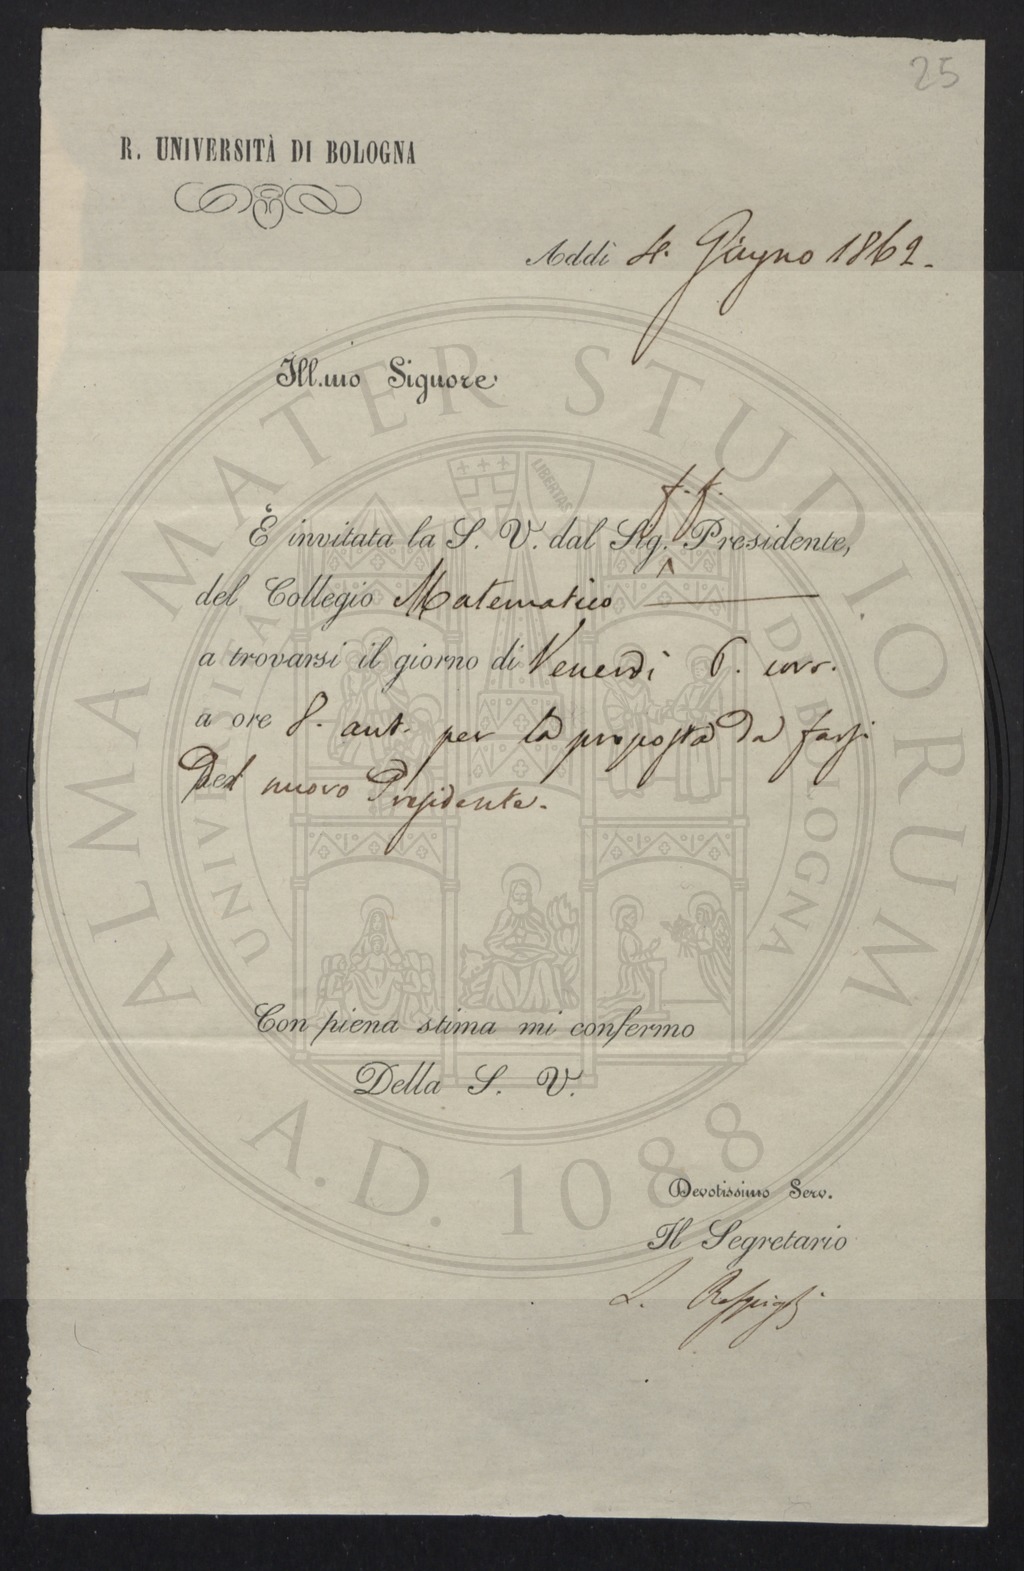 25
R. UNIVERSITÀ DI BOLOGNA
Addì 4. Giugno 1862.
Ill.mo Signore
f.f.
È invitata la S. V. dal Sig. Presidente,
del Collegio Matematico
a trovarsi il giorno di Venerdì 6. corr.
a ore 8. ant. per la proposta da farsi
del nuovo Presidente.
Con piena stima mi confermo
Della S. V.
Devotissimo Serv.
Il Segretario
L. Respighi
ALMA MATER STUDIORUM
UNIVERSITÀ DI BOLOGNA
LIBERTAS
A.D. 1088